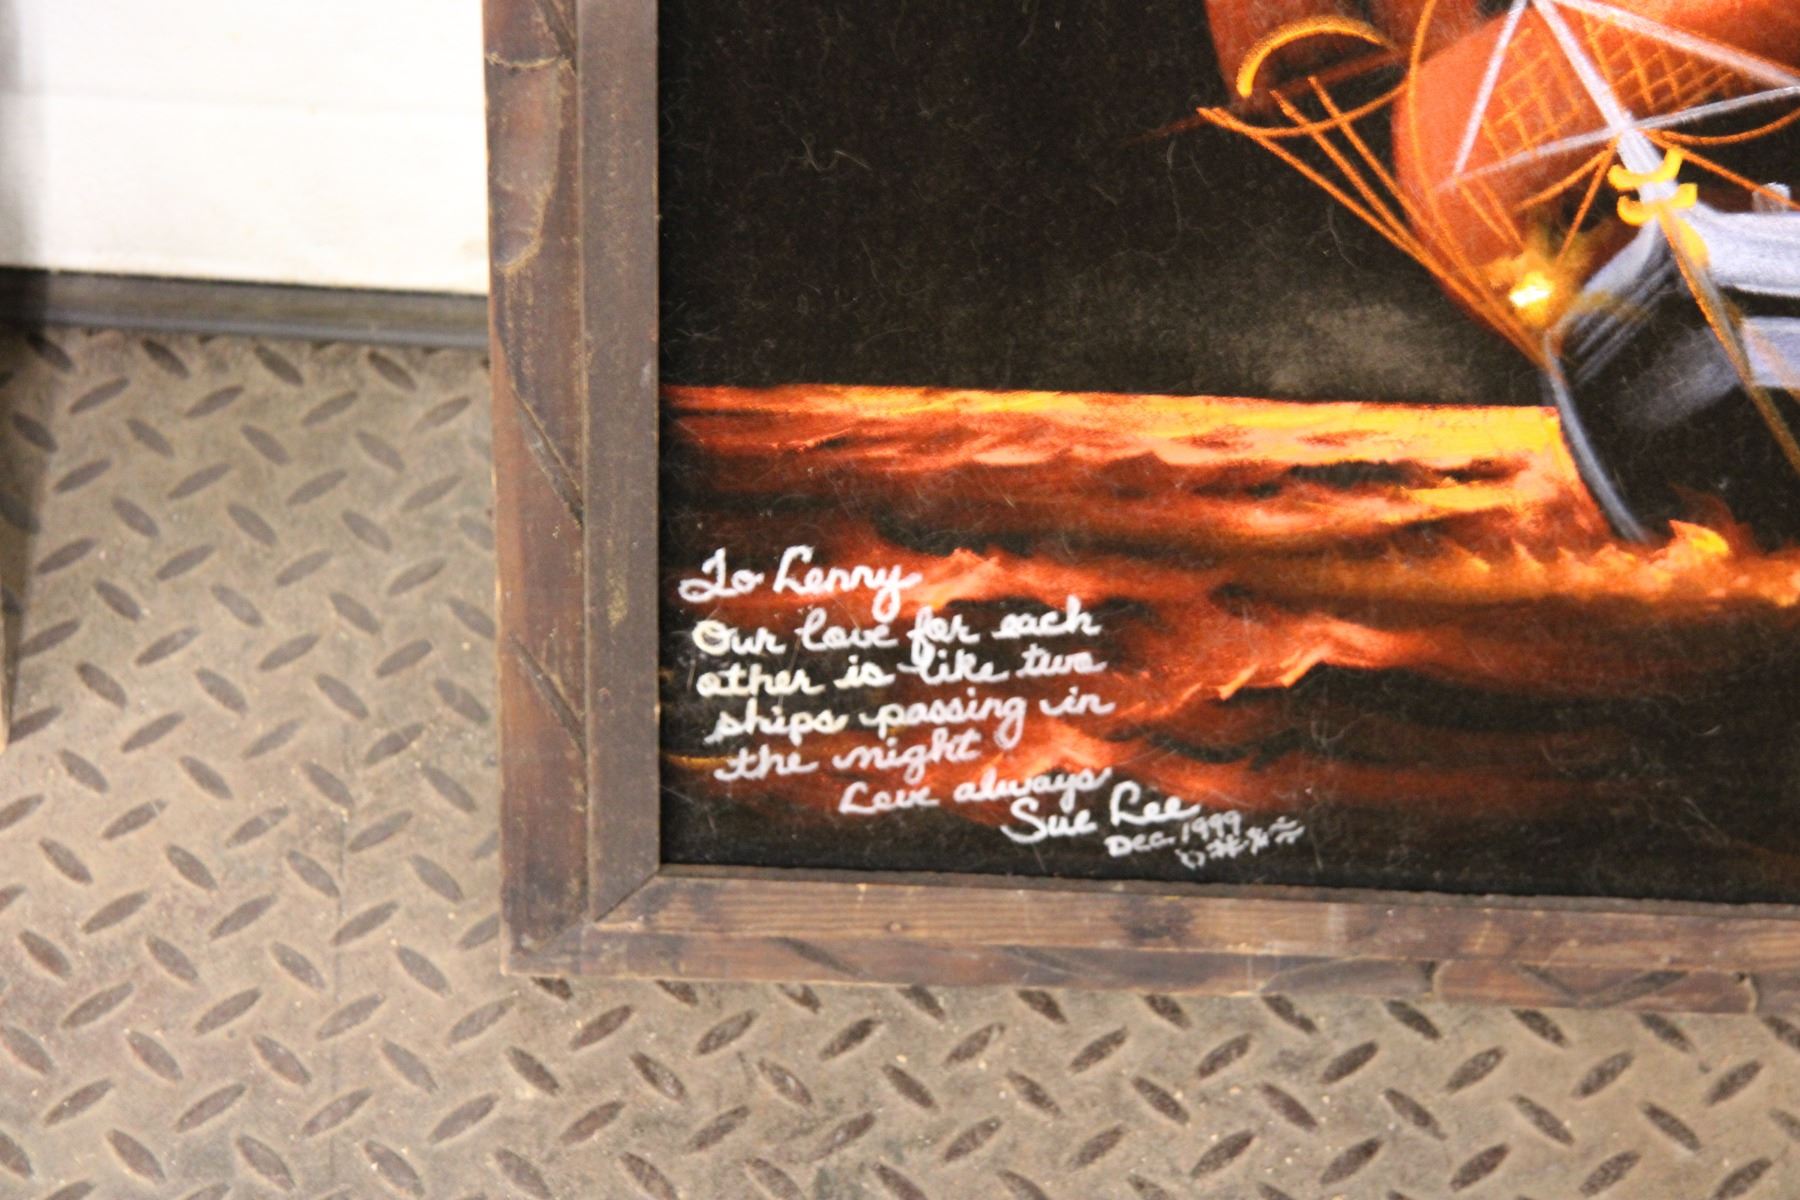 To Lenny
Our love for each
other is like two
ships passing in
the night
Love always
Sue Lee
Dec. 1999